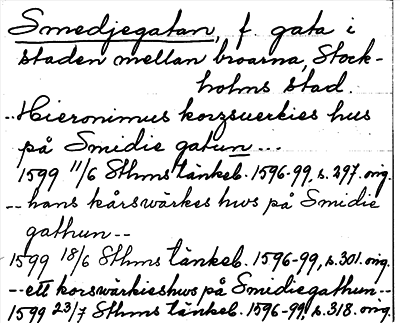 Smedjegatan, f. gata i
staden mellan broarna, Stock-
holms stad.
..Hieronimus korzsuerkies hus
på Smidie gatun...
1599 11/6 Sthms tänkeb. 1596-99, s. 297. orig.
-- hans kårswärkes hws på Smidie
gathun--
1599 18/6 Sthms tänkeb. 1596-99, s. 301. orig.
--ett korswärkieshws på Smidiegathun--
1599 23/7 Sthms tänkeb. 1596-99, s. 318. orig.